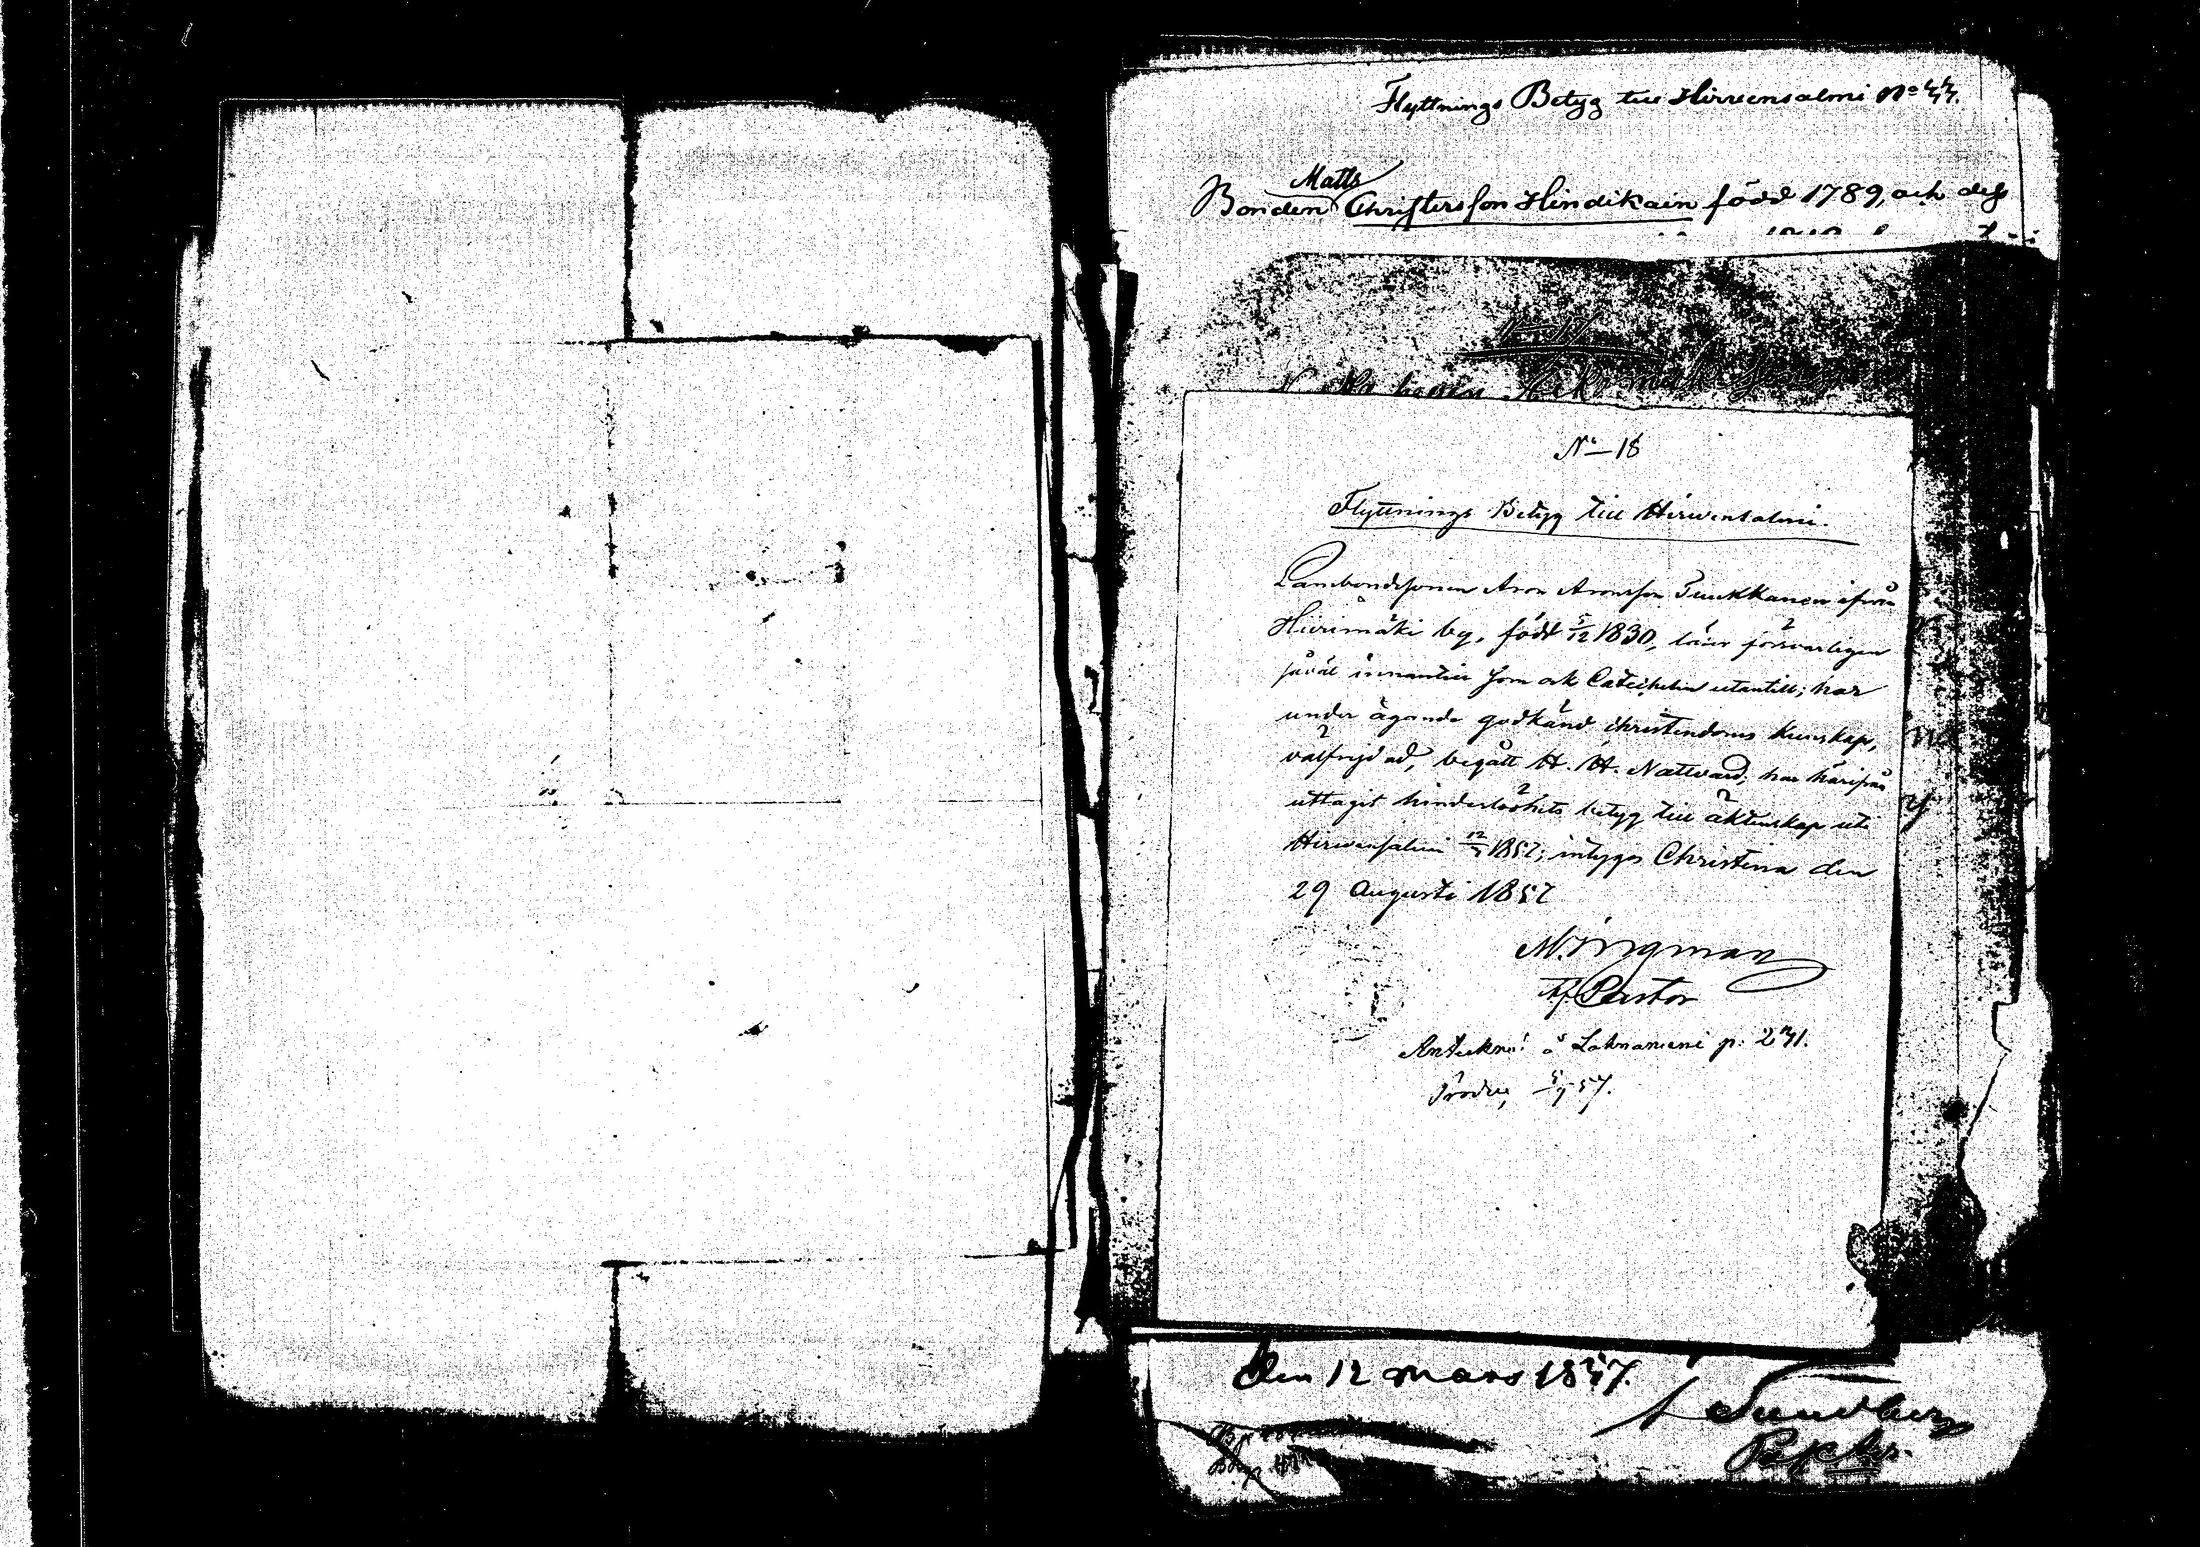 Flyttnings Betyg till Hirvensalmi No 44.
Matts
Bonden Christersson Hindikain född 1789, och dess
No 18
Flyttnings Betyg till Hirvensalmi.
Lambondesonen Aron Aronsson Tuukkanen ifrån
Hurimäki by, född 5/12 1830, läser försvarligen
såväl innantill som ock Catechesin utantill; har
under ägande godkänd christendoms kunskap,
välfrejdad, begått H. H. Nattvard; har härifrån
uttagit hinderlöshets betyg till äktenskap uti
Hirvensalmi 1857; intygas Christina den
29 Augusti 1857
M. Ingman
Tf. Pastor
Anteckna: å Lahnaniemi p. 271.
Den 12 Mars 1847.